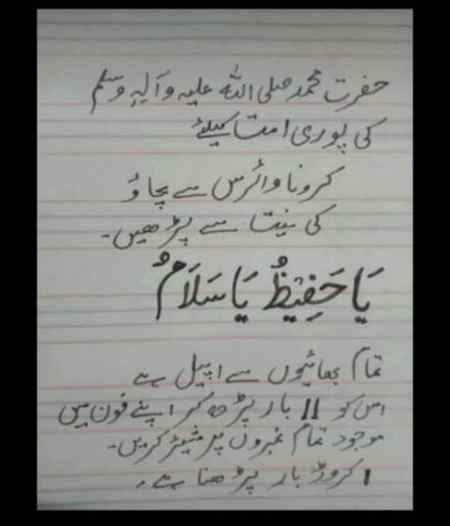 حضرت محمد صلی اللہ علیہ وآلہٖ وسلم
کی پوری امت کیلئے
کرونا وائرس سے بچاؤ
کی نیت سے پڑھیں۔
یَا حَفِیْظُ یَا سَلَامُ
تمام بھائیوں سے اپیل ہے
اس کو 11 بار پڑھ کر اپنے فون میں
موجود تمام نمبروں پر شیئر کریں۔
1 کروڑ بار پڑھنا ہے۔